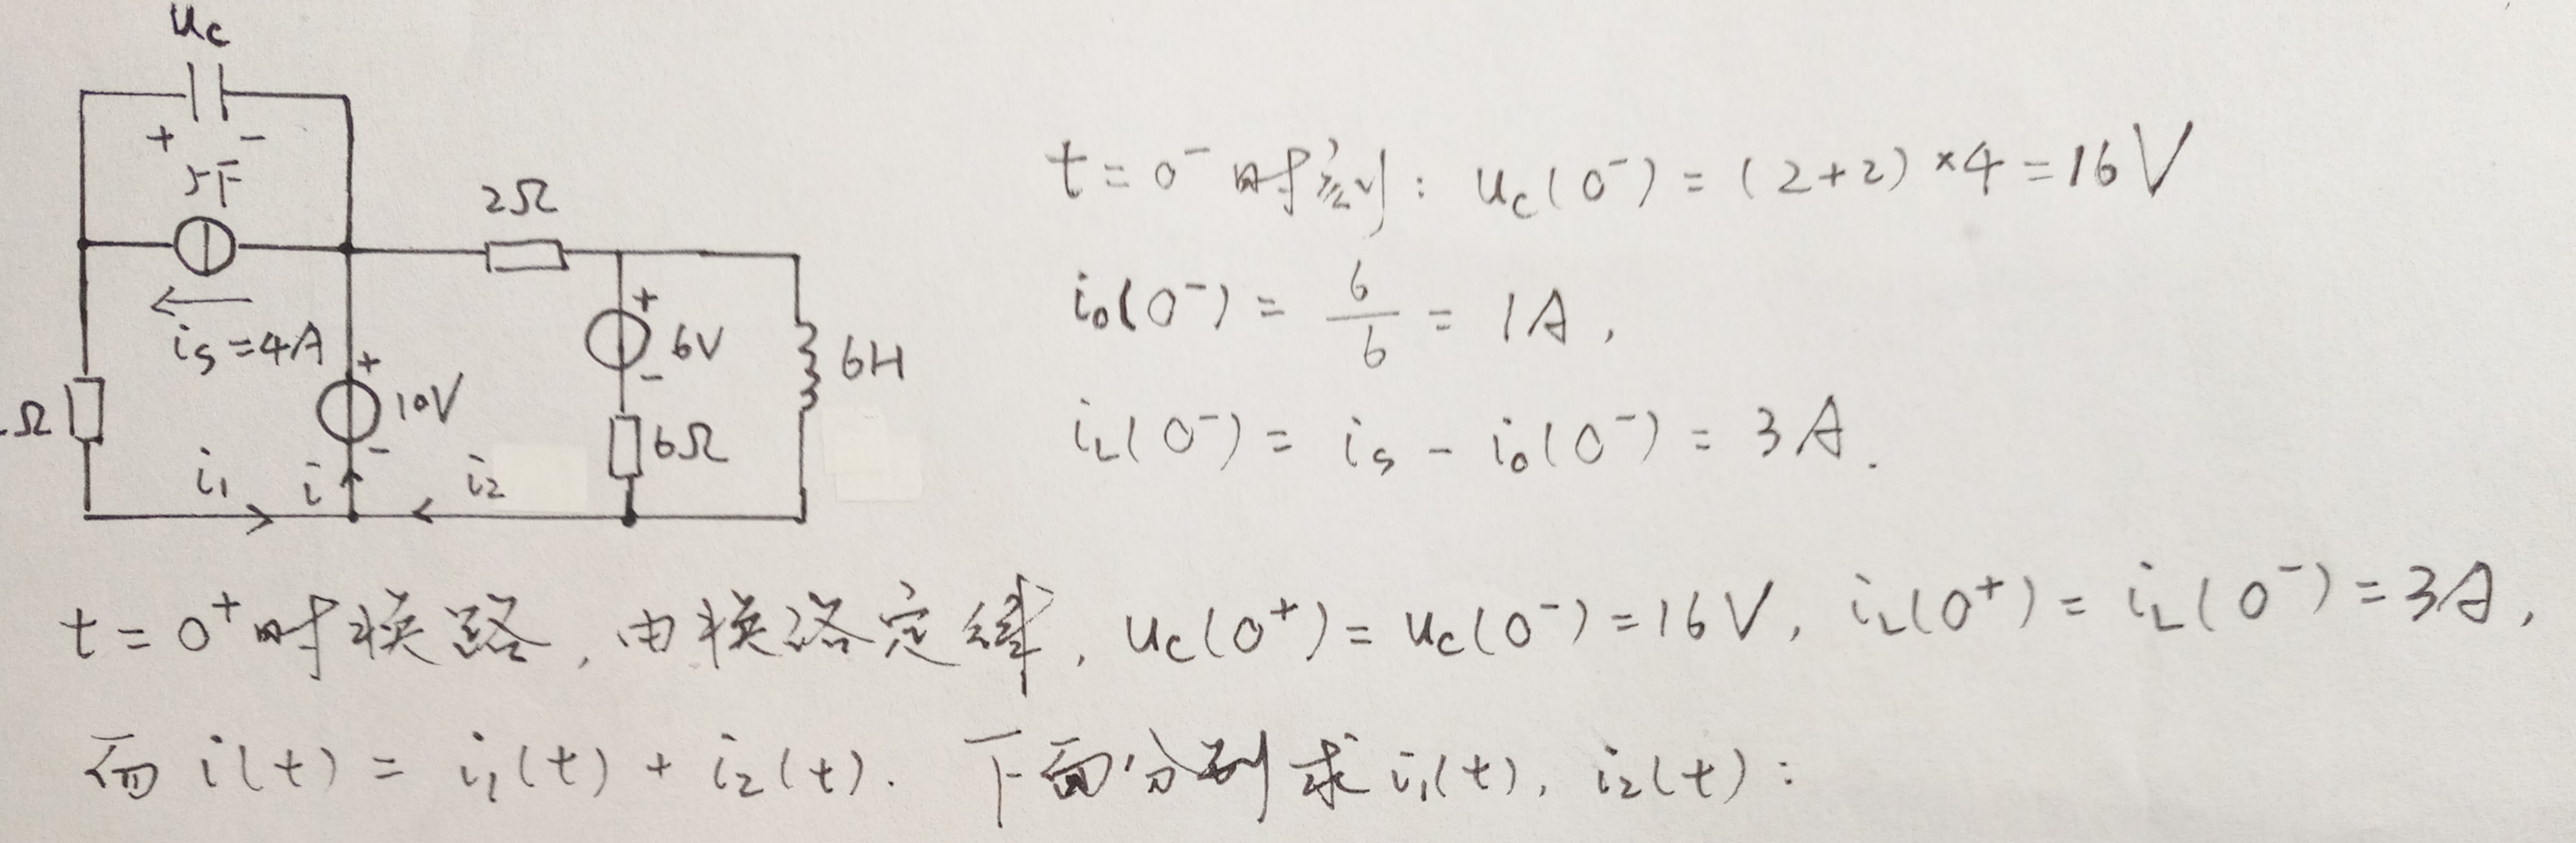 uc
+ -
5F
2Ω
is=4A
+
10V
-
+
6V
-
6Ω
6H
Ω
i₁
i
i₂
t=0⁻时刻: uc(0⁻)=(2+2)×4=16V
i₀(0⁻)=6/6=1A,
iL(0⁻)=is-i₀(0⁻)=3A.
t=0⁺时换路,由换路定律,uc(0⁺)=uc(0⁻)=16V,iL(0⁺)=iL(0⁻)=3A,
而i(t)=i₁(t)+i₂(t).下面分别求i₁(t),i₂(t):